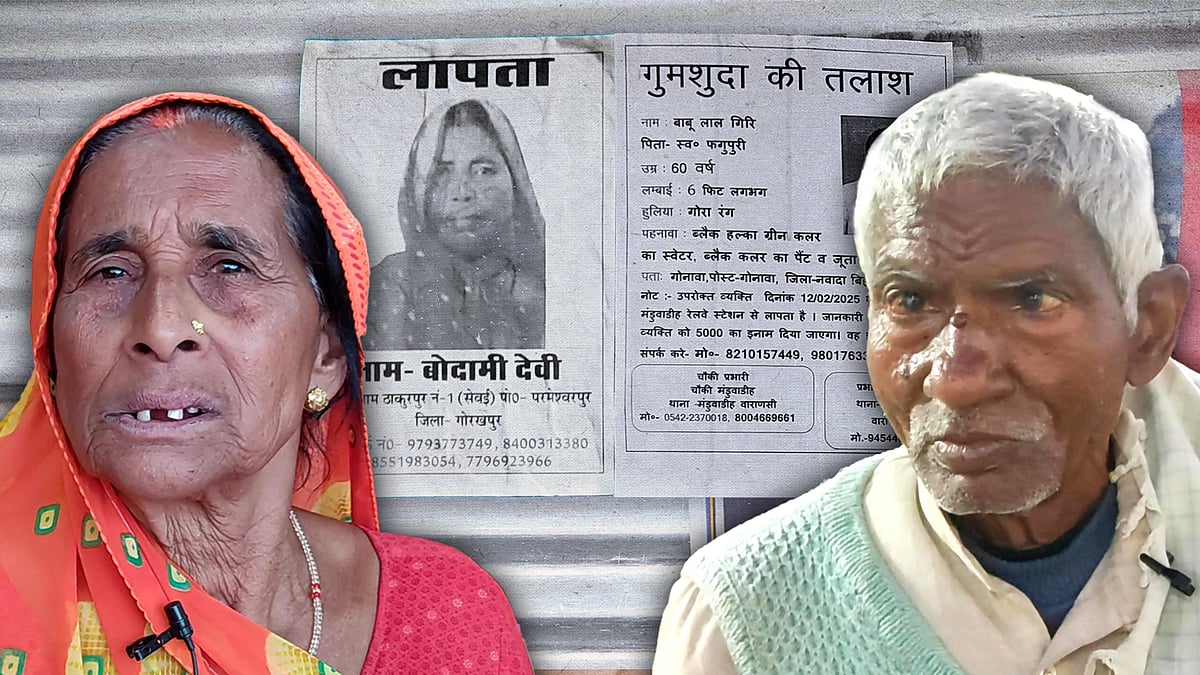 लापता
बोदामी देवी
ठाकुरपुर नं-1 (सेवई) पो०- परमेश्वरपुर
जिला- गोरखपुर
नं०- 9793773749, 8400313380
8551983054, 7796923966
गुमशुदा की तलाश
नाम : बाबू लाल गिरि
पिता- स्व० फगुपुरी
उम्र : 60 वर्ष
लम्बाई : 6 फिट लगभग
हुलिया : गोरा रंग
पहनावा : ब्लैक हल्का ग्रीन कलर
का स्वेटर, ब्लैक कलर का पैंट व जूता
पताः गोनावा,पोस्ट-गोनावा, जिला-नवादा
नोट :- उपरोक्त व्यक्ति दिनांक 12/02/2025
मंडुवाडीह रेलवे स्टेशन से लापता है । जानकारी
व्यक्ति को 5000 का इनाम दिया जाएगा। वह
संपर्क करे- मो०- 8210157449, 98017633
चौकी प्रभारी
चौकी मंडुवाडीह
थाना -मंडुवाडीह वाराणसी
मो०- 0542-2370018, 8004669661
थाना-
मो.-9454